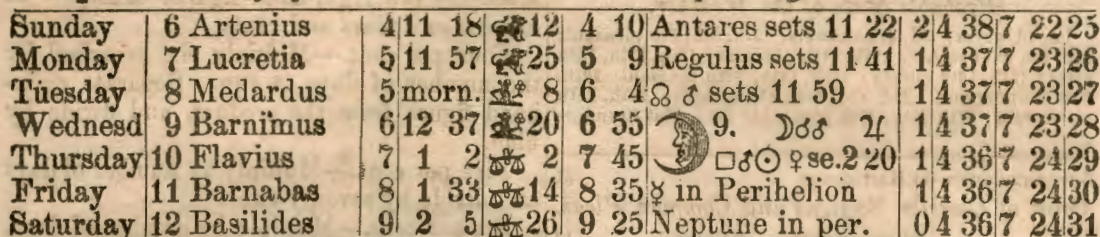 Sunday 6 Artenius 4 11 18 12 4 10 Antares sets 11 22 2 4 38 7 22 25
Monday 7 Lucretia 5 11 57 25 5 9 Regulus sets 11 41 1 4 37 7 23 26
Tuesday 8 Medardus 5 morn. 8 6 4 ☊ ♂ sets 11 59 1 4 37 7 23 27
Wednesd 9 Barnimus 6 12 37 20 6 55 9. ☽☌♂ ♃ 1 4 37 7 23 28
Thursday 10 Flavius 7 1 2 ♎ 2 7 45 □♂☉ ♀ se. 2 20 1 4 36 7 24 29
Friday 11 Barnabas 8 1 33 ♎ 14 8 35 ☿ in Perihelion 1 4 36 7 24 30
Saturday 12 Basilides 9 2 5 ♎ 26 9 25 Neptune in per. 0 4 36 7 24 31